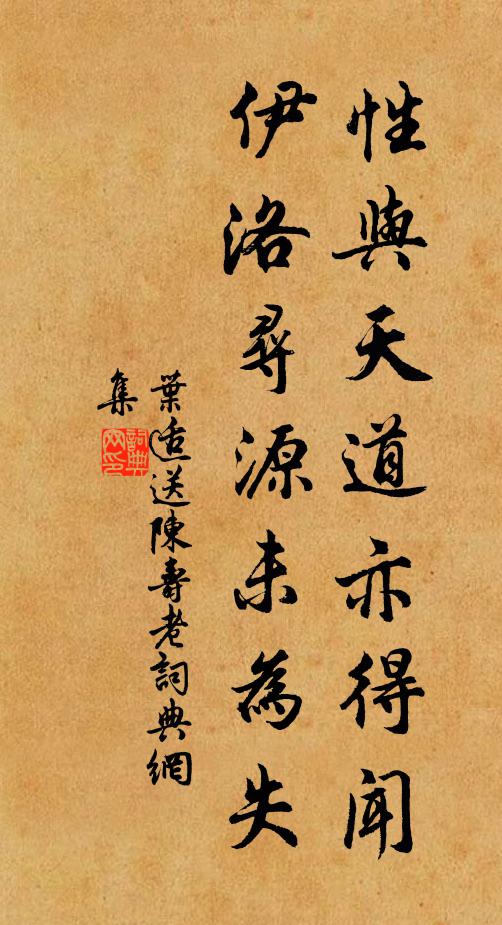 性與天道亦得聞
伊洛尋源未為失
葉适送陳壽老詞典網
集
詞典
网印